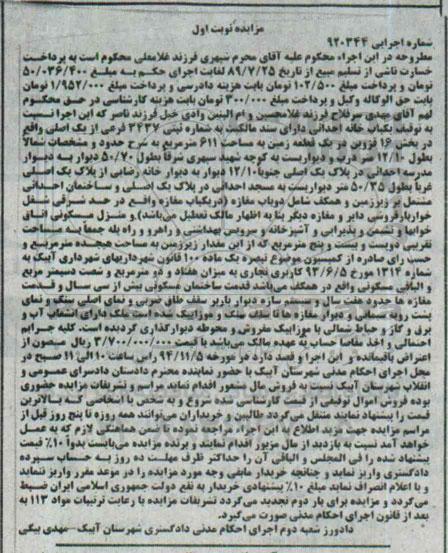 مزایده نوبت اول
شماره اجرایی ۹۲۰۳۴۴
مطروحه در این اجراء محکوم علیه آقای محرم شهری فرزند غلامعلی محکوم است به پرداخت
خسارت ناشی از تسلیم مبیع از تاریخ ۸۹/۷/۲۵ لغایت اجرای حکم به مبلغ ۵۰/۰۳۶/۴۰۰
تومان و پرداخت مبلغ ۱۰۲/۵۰۰ تومان بابت هزینه دادرسی و پرداخت مبلغ ۱/۹۵۲/۰۰۰ تومان
بابت حق الوکاله وکیل و پرداخت مبلغ ۳۰۰/۰۰۰ تومان بابت هزینه کارشناسی در حق محکوم
لهم آقای مهدی سرفلاح فرزند غلامحسین و ام البنین وادی خیل فرزند ناصر که این اجرا نسبت
به توقیف یکباب خانه احداثی دارای سند مالکیت به شماره ثبتی ۳۴۳۷ فرعی از یک اصلی واقع
در بخش ۱۶ قزوین در یک قطعه زمین به مساحت ۶۱۱ مترمربع به شرح حدود و مشخصات شمالاً
بطول ۱۲/۱۰ متر درب و دیواریست به کوچه شهید سپهری شرقاً بطول ۵۰/۷۰ دیوار به دیوار
مدرسه احداثی در پلاک یک اصلی جنوباً ۱۲/۱۰ دیوار به دیوار خانه رضایی از پلاک یک اصلی
غرباً بطول ۵۰/۳۵ متر دیواریست به مسجد احداثی در پلاک یک اصلی و ساختمان احداثی
مشتمل بر زیرزمین و همکف شامل دوباب مغازه (دریکباب مغازه واقع در حد شرقی شغل
خواربارفروشی دایر و مغازه دیگر بنا به اظهار مالک تعطیل می‌باشد) و منزل مسکونی اتاق
خوابها و نشیمن و پذیرایی و آشپزخانه و سرویس بهداشتی و راهرو و راه پله جمعاً به مساحت
تقریبی دویست و بیست و پنج مترمربع که از این مقدار زیرزمین به مساحت هیجده مترمربع و
حسب رای صادره از کمیسیون موضوع تبصره یک ماده ۱۰۰ قانون شهرداریهای شهرداری آبیک به
شماره ۱۳۱۴ مورخ ۹۳/۶/۵ کاربری تجاری به میزان هفتاد و دو مترمربع و شصت دسیمتر مربع
و الباقی مسکونی واقع در همکف می‌باشد قدمت ساختمان مسکونی بیش از سی سال و قدمت
مغازه ها حدود هفت سال و سیستم سازه دیوار باربر سقف طاق ضربی و نمای اصلی پینک و نمای
پشت رویه سیمانی و دیوار مغازه ها تا سقف پینک و موزائیک شده است ملک دارای انشعاب آب و
برق و گاز و حیاط شمالی با موزائیک مفروش و محوطه دیوارگذاری گردیده است. کلیه جرایم
احتمالی و اخذ مفاصا حساب به عهده مالک می‌باشد با قیمت ۳/۷۰۰/۰۰۰/۰۰۰ ریال مصون از
اعتراض باقیمانده و این اجرا و قصد دارد در مورخه ۹۴/۱۱/۵ راس ساعت ۱۰ الی ۱۱ صبح در
محل اجرای احکام مدنی شهرستان آبیک با حضور نماینده محترم دادستان دادسرای عمومی و
انقلاب شهرستان آبیک نسبت به فروش مال مشعور اقدام نماید مراسم و تشریفات مزایده حضوری
بوده فروش اموال توقیفی از قیمت کارشناسی شده شروع و به شخص یا اشخاصی که بالاترین
قیمت را پیشنهاد نمایند منتقل می‌گردد طالبین و خریداران می‌توانند همه روزه تا پنج روز قبل از
مراسم مزایده جهت مزید اطلاع به این اجراء مراجعه نموده تا ضمن هماهنگی لازم که به عمل
خواهد آمد نسبت به بازدید از مال مزبور اقدام نمایند و برنده مزایده می‌بایست بدواً ۱۰٪ قیمت
پیشنهاد شده را فی المجلس و الباقی آن را حداکثر ظرف مهلت ده روز به حساب سپرده
دادگستری واریز نماید و چنانچه خریدار مابقی وجه مورد مزایده را در موعد مقرر واریز ننماید
و یا اعلام انصراف نماید مبلغ ۱۰٪ پیشنهادی خریدار به نفع دولت جمهوری اسلامی ایران ضبط
می‌گردد و مزایده برای بار دوم تجدید می‌گردد تشریفات مزایده با رعایت ترتیبات مواد ۱۱۳ به
بعد از قانون اجرای احکام مدنی صورت می‌گیرد.
دادورز شعبه دوم اجرای احکام مدنی دادگستری شهرستان آبیک-مهدی بیگی